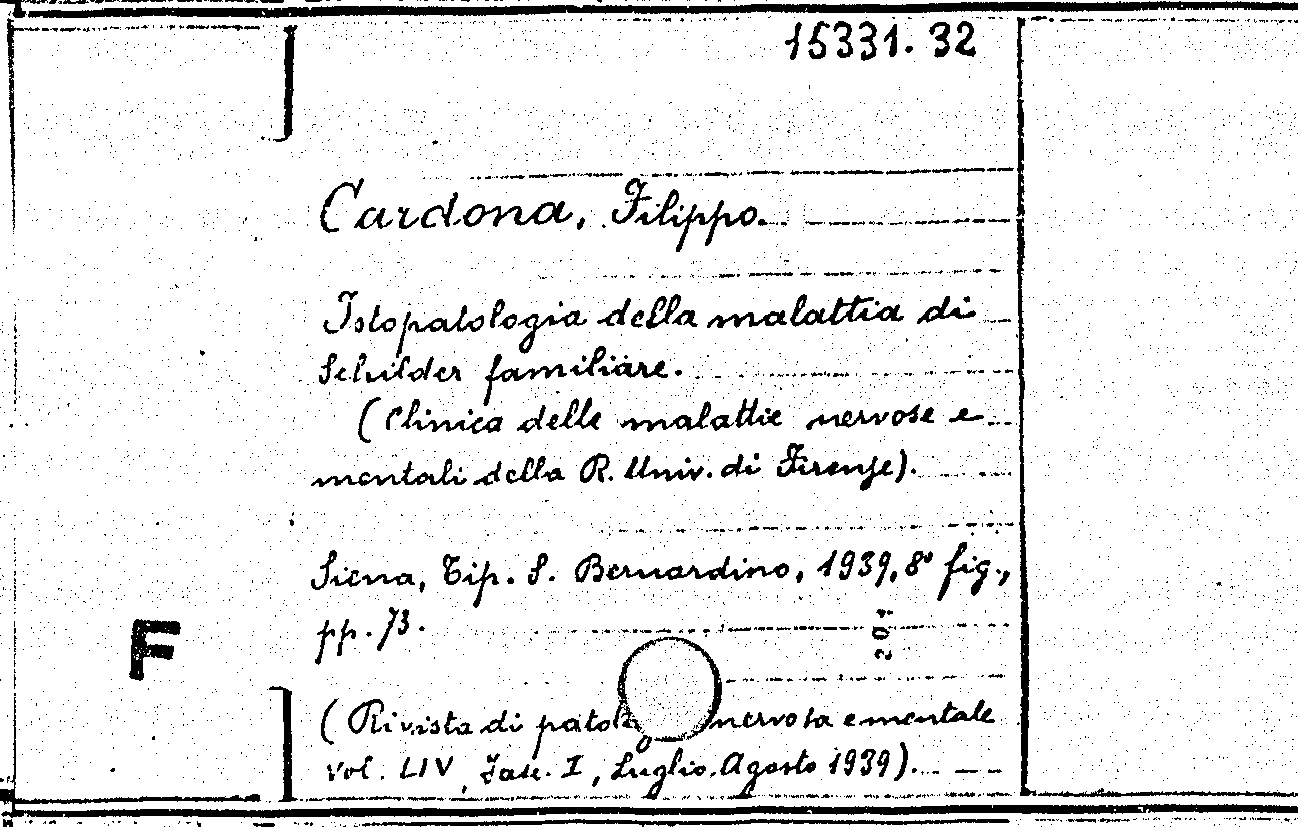 15331.32
Cardona, Filippo.
Istopatologia della malattia di
Schilder familiare.
(Clinica delle malattie nervose e
mentali della R. Univ. di Firenze).
Siena, Tip. S. Bernardino, 1939, 8° fig.,
pp. 73.
204
F
(Rivista di patolog nervosa e mentale
Vol. LIV, Fasc. I, Luglio. Agosto 1939).